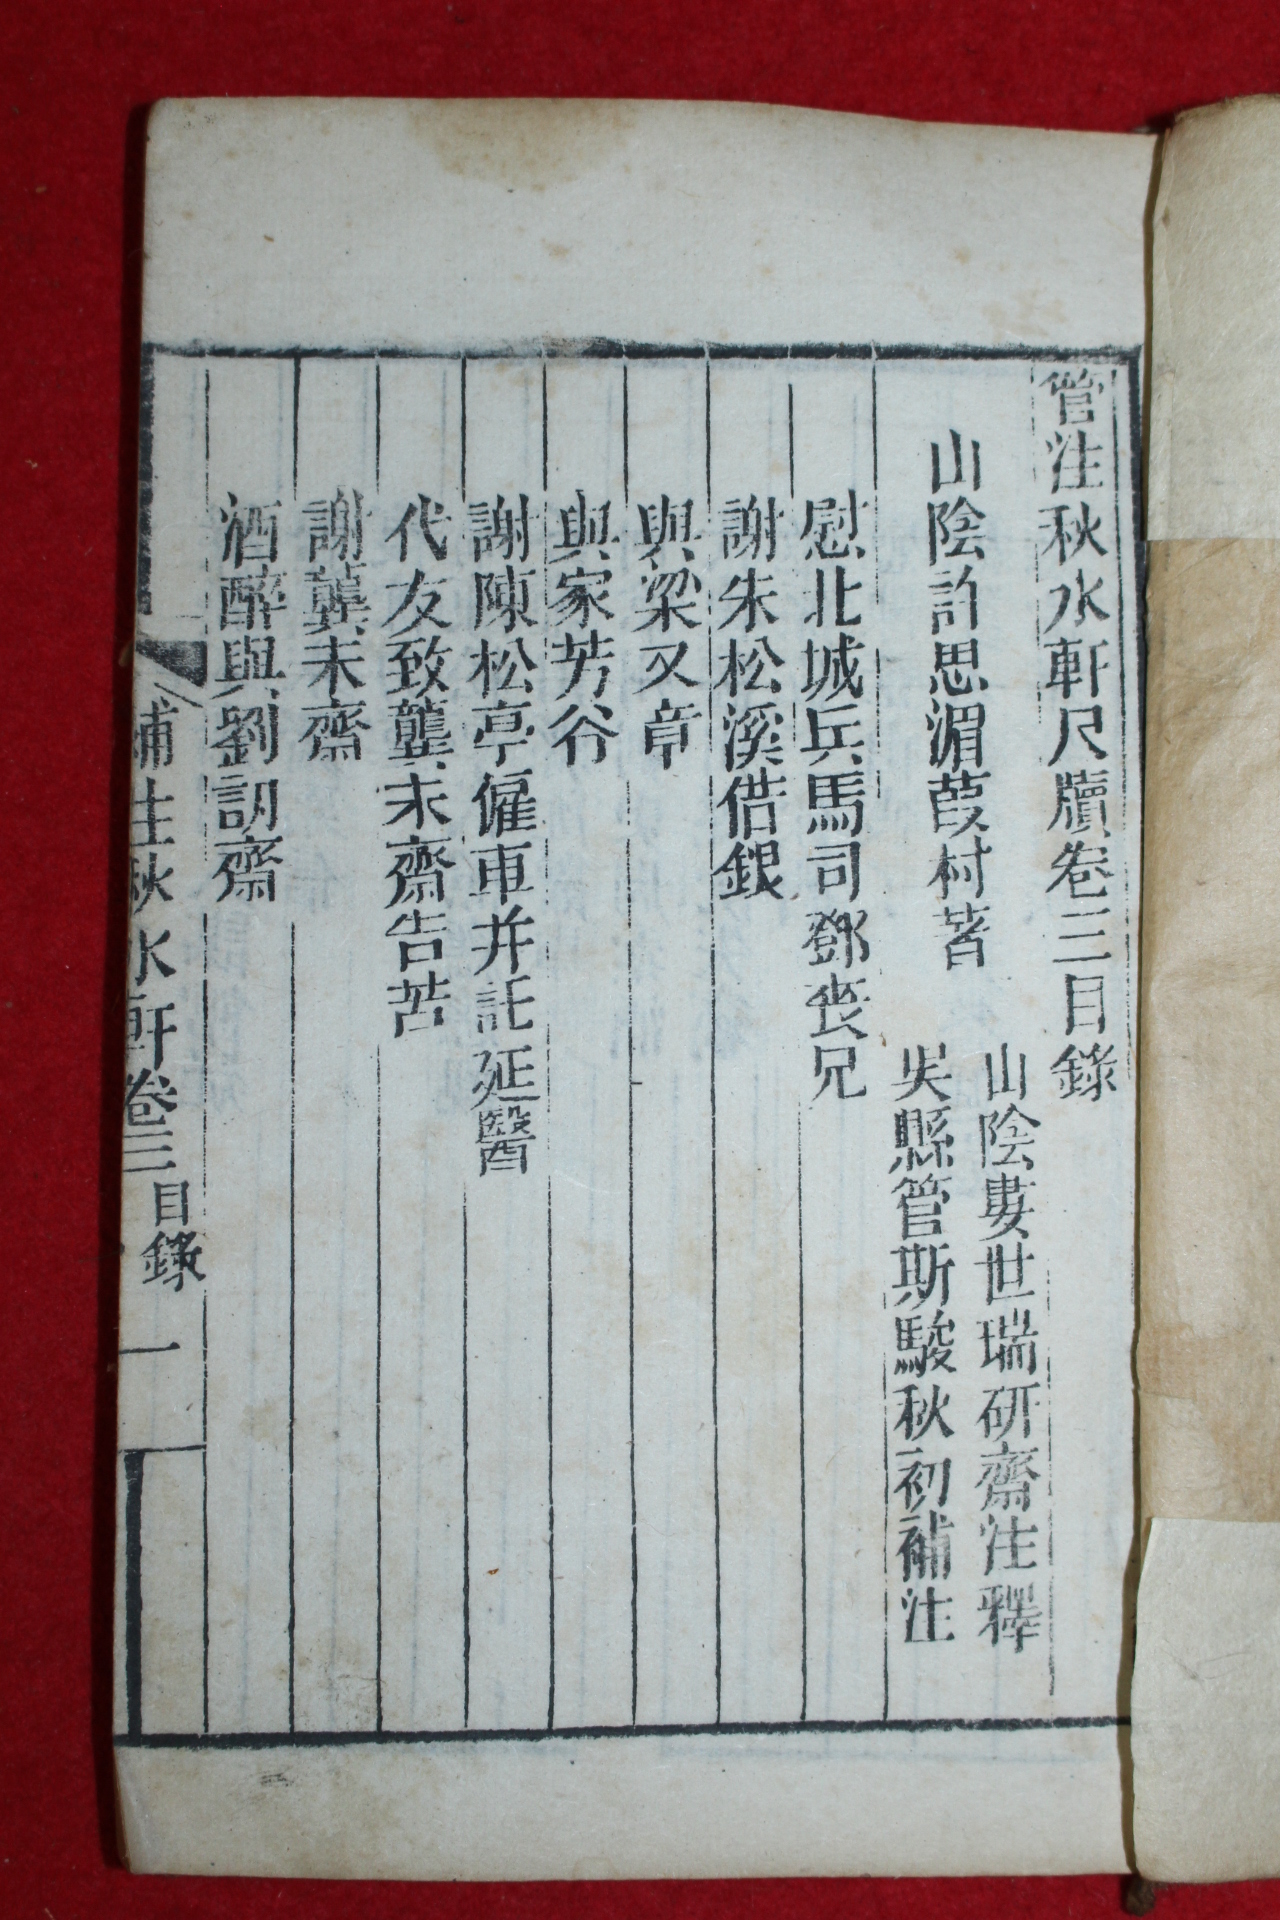 管注秋水軒尺牘卷三目錄
山陰許思湄葭村著
山陰婁世瑞研齋注釋
吳縣管斯駿秋初補注
慰北城兵馬司鄧喪兄
謝朱松溪借銀
與梁又章
與家芳谷
謝陳松亭僱車并託延醫
代友致龔未齋告苦
謝龔未齋
酒醉與劉訒齋
補注秋水軒卷三目錄 一